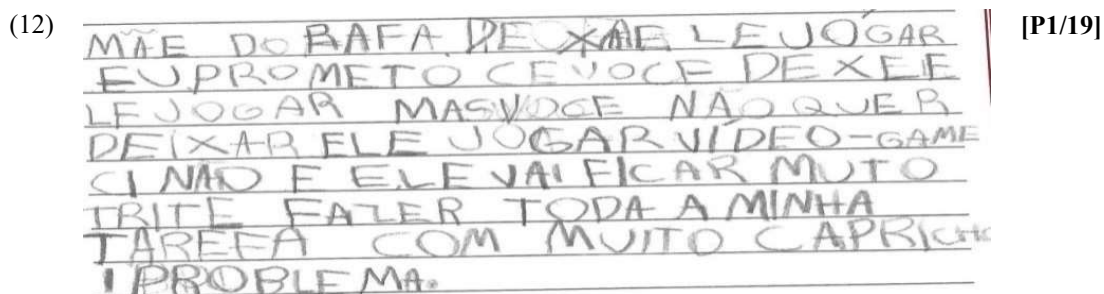 (12) [P1/19]
MÃE DO RAFA. DEIXAE LE JÓGAR
EU PROMETO CE VOCE DEXE E
LE JOGAR MAS VOCE NÃO QUER
DEIXAR ELE JOGAR VÍDEO-GAME
CI NÃO E ELE VAI FICAR MUTO
TRITE FAZER TODA A MINHA
TAREFA COM MUITO CAPRICHO
1 PROBLEMA.